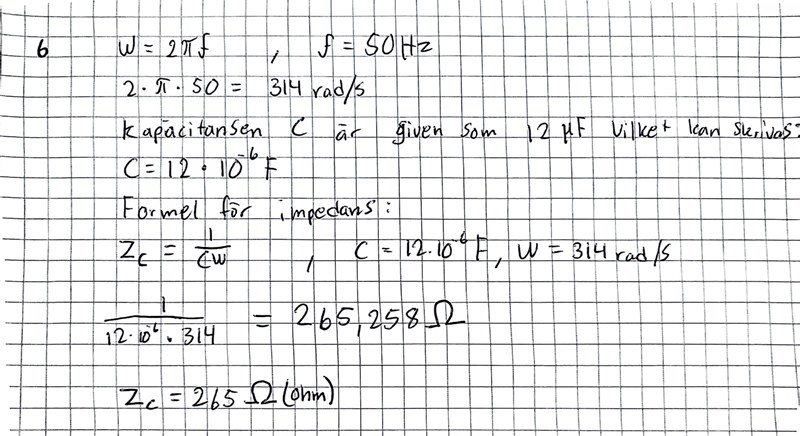 6 W = 2πf , f = 50 Hz
2 · π · 50 = 314 rad/s
Kapacitansen C är given som 12 µF vilket kan skrivas:
C = 12 · 10⁻⁶ F
Formel för impedans:
Z_C = 1/CW , C = 12 · 10⁻⁶ F, W = 314 rad/s
1/(12 · 10⁻⁶ · 314) = 265,258 Ω
Z_C = 265 Ω (ohm)